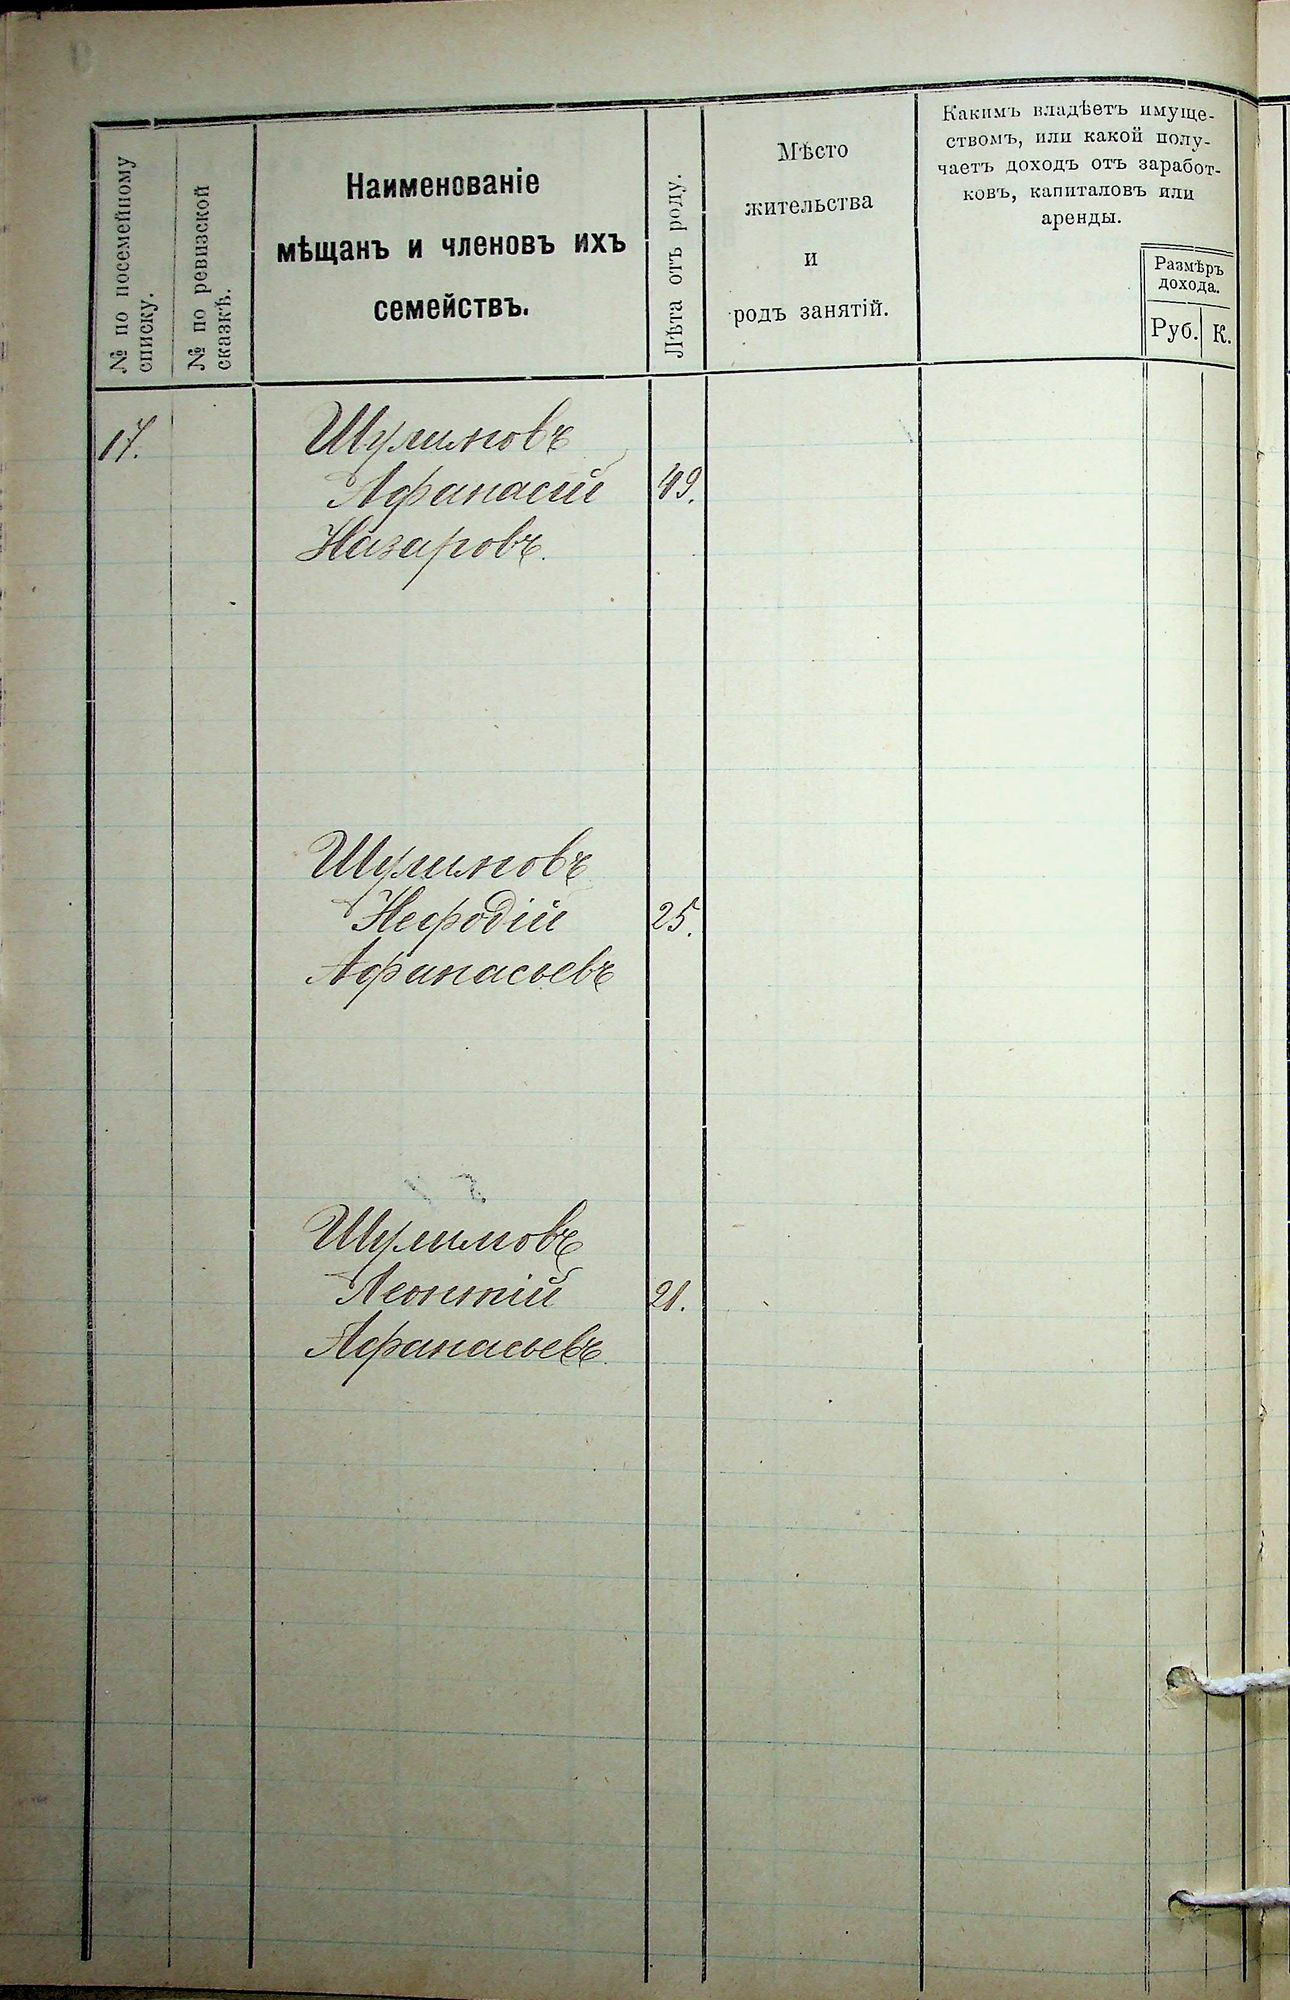 № по посемейному
списку.
№ по ревизской
сказкѣ.
Наименованіе
мѣщанъ и членовъ ихъ
семействъ.
Лѣта отъ роду.
Мѣсто
жительства
и
родъ занятій.
Какимъ владѣетъ имуще-
ствомъ, или какой полу-
чаетъ доходъ отъ заработ-
ковъ, капиталовъ или
аренды.
Размѣръ
дохода.
Руб. К.
17.
Шулимовъ
Афанасій 49.
Назаровъ.
Шулимовъ
Мефодій 25.
Афанасьевъ
Шулимовъ
Леонтій 21.
Афанасьевъ.